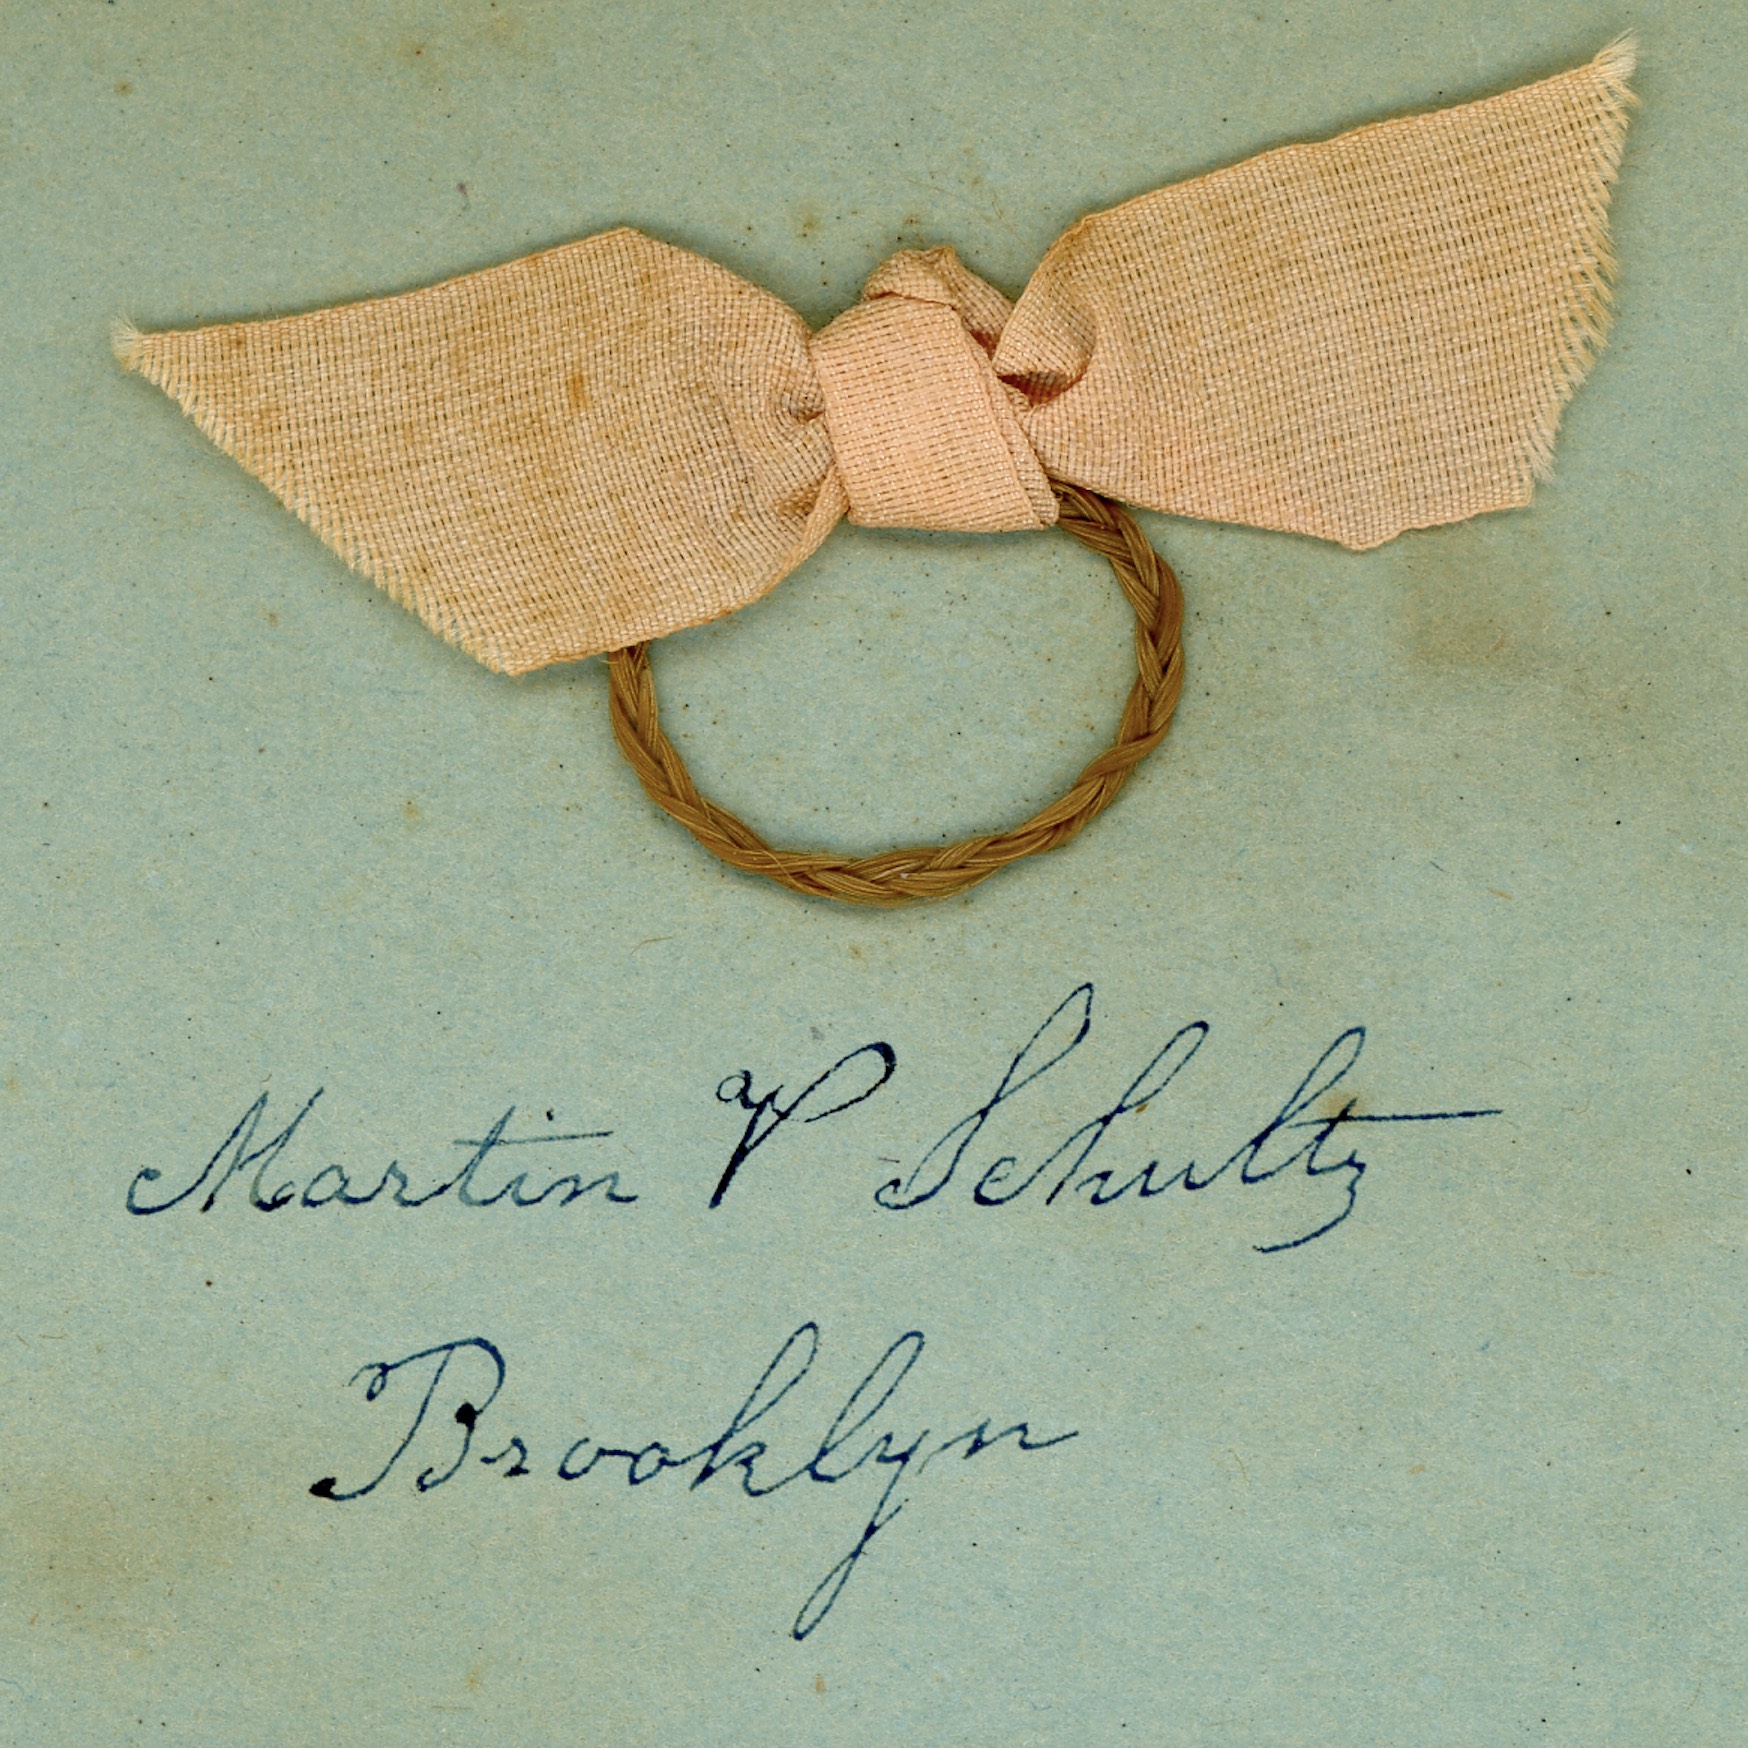 Martin V Schultz
Brooklyn